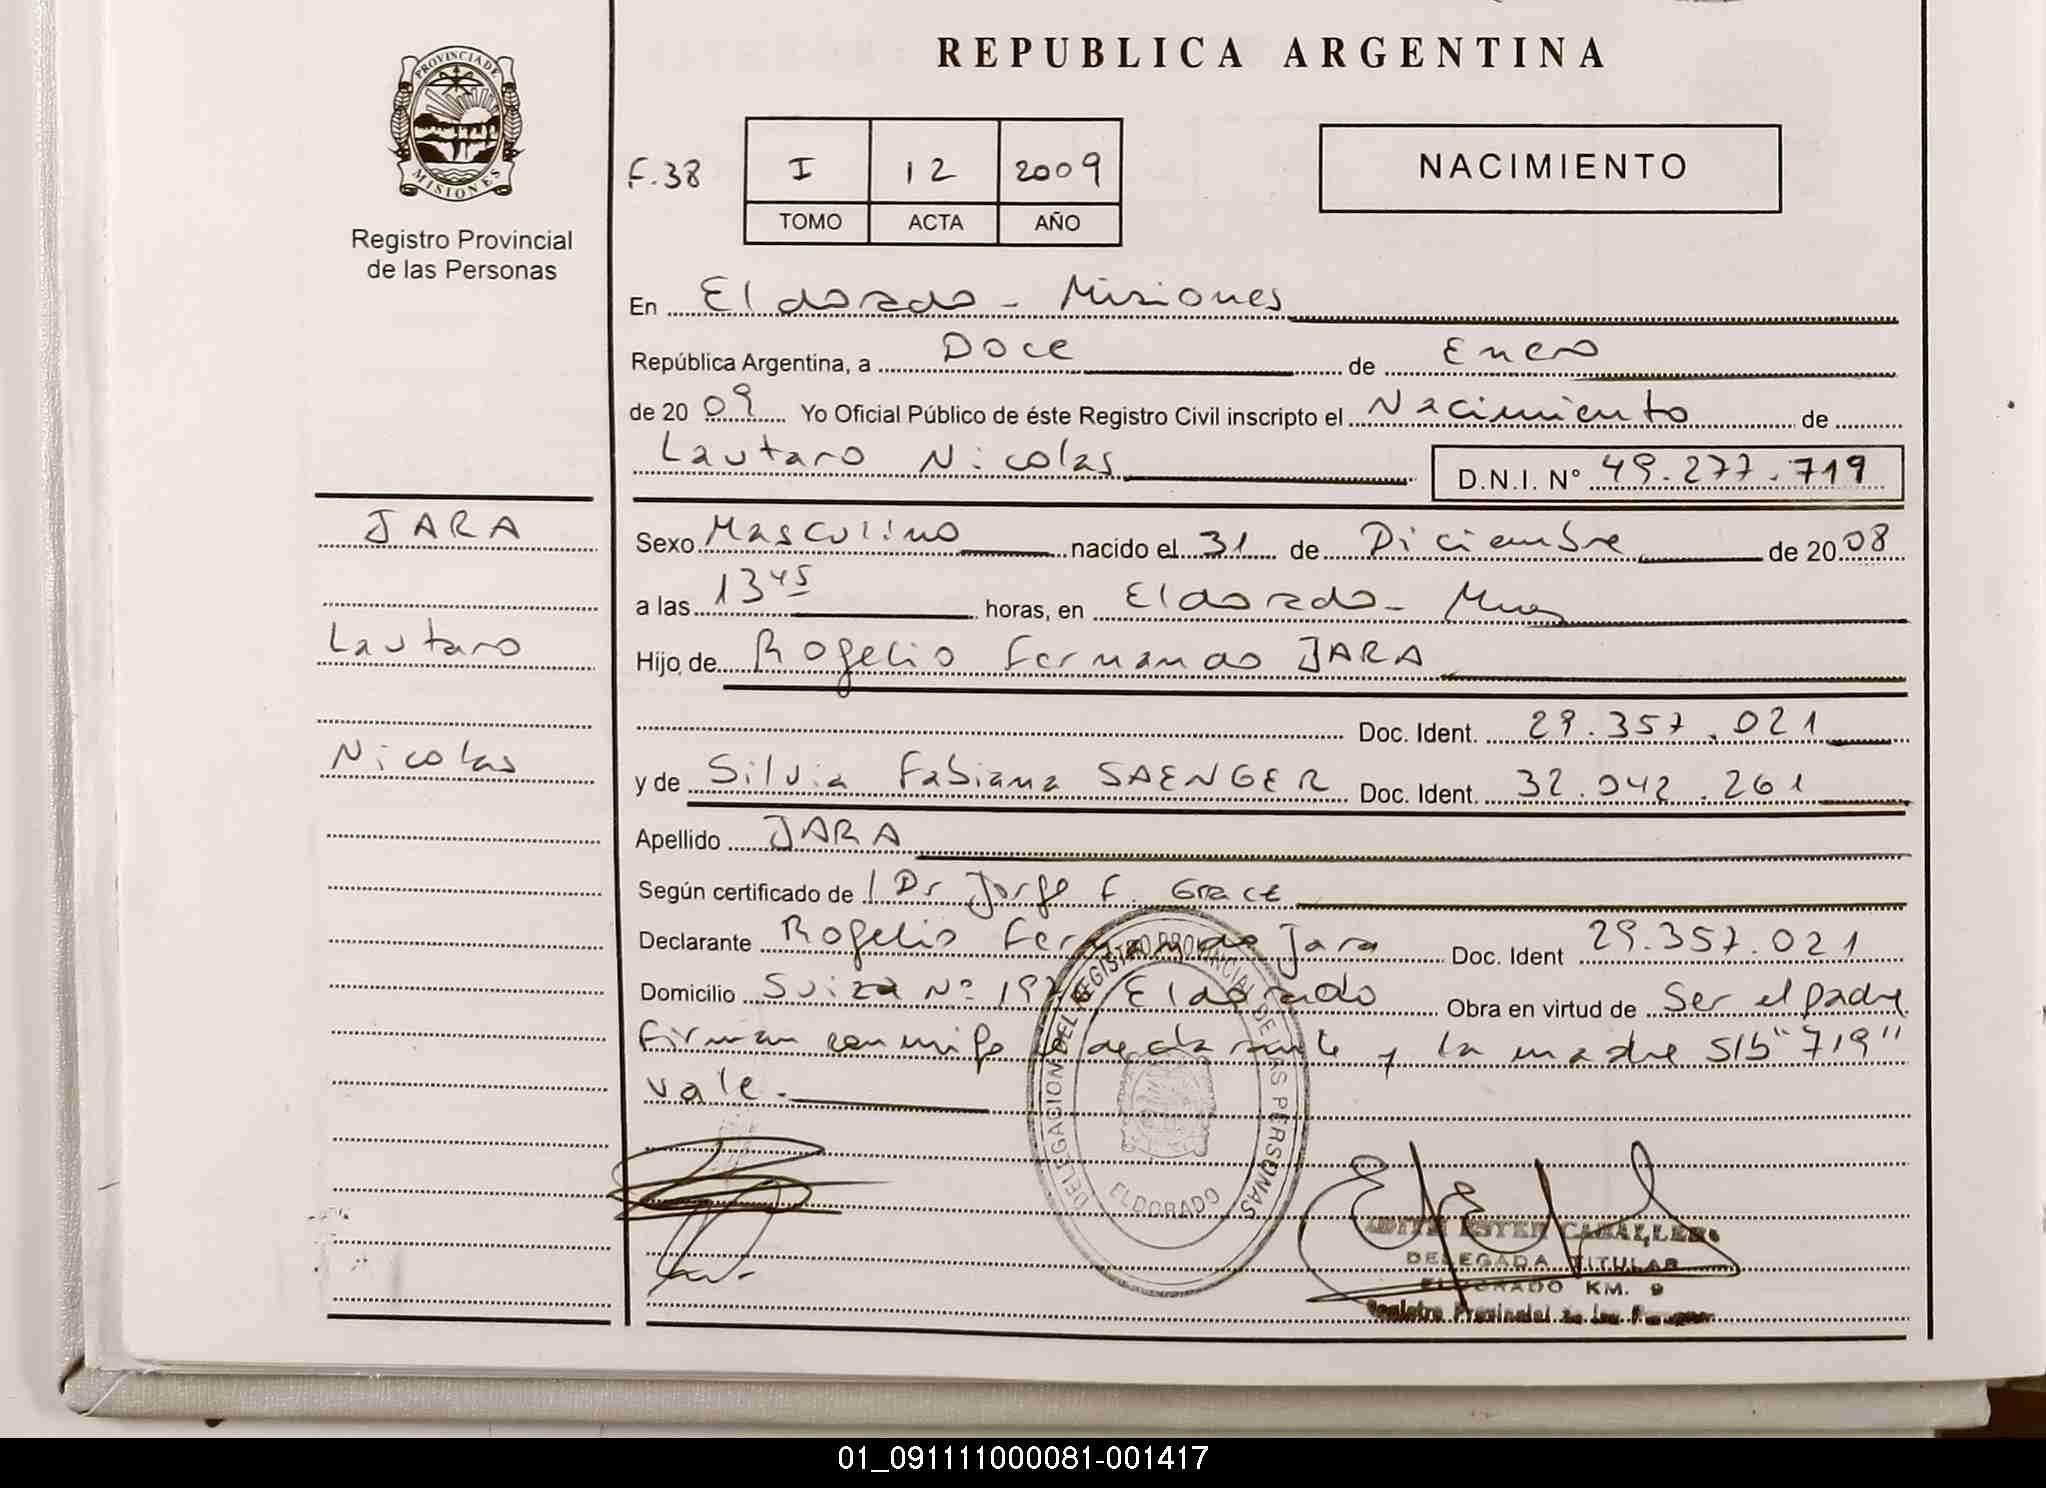 REPUBLICA ARGENTINA
PROVINCIA DE MISIONES
Registro Provincial
de las Personas
F.38
I 12 2009
TOMO ACTA AÑO
NACIMIENTO
En Eldorado - Misiones
República Argentina, a Doce de Enero
de 2009 Yo Oficial Público de éste Registro Civil inscripto el Nacimiento de
Lautaro Nicolas D.N.I. Nº 49.277.719
JARA
Lautaro
Nicolas
Sexo Masculino nacido el 31 de Diciembre de 2008
a las 13 45 horas, en Eldorado - Mnes
Hijo de Rogelio Fernando JARA
Doc. Ident. 29.357.021
y de Silvia Fabiana SAENGER Doc. Ident. 32.042.261
Apellido JARA
Según certificado de Dr Jorge F. Grace
Declarante Rogelio Fernando Jara Doc. Ident 29.357.021
Domicilio Suiza Nº Eldorado Obra en virtud de Ser el padre
firman conmigo el declarante y la madre S/b "719"
vale.-
DELEGACION DEL REGISTRO PROVINCIAL DE LAS PERSONAS
ELDORADO
ESTER CABALLERO
DELEGADA TITULAR
ELDORADO KM. 9
Registro Provincial de las Personas
01_091111000081-001417